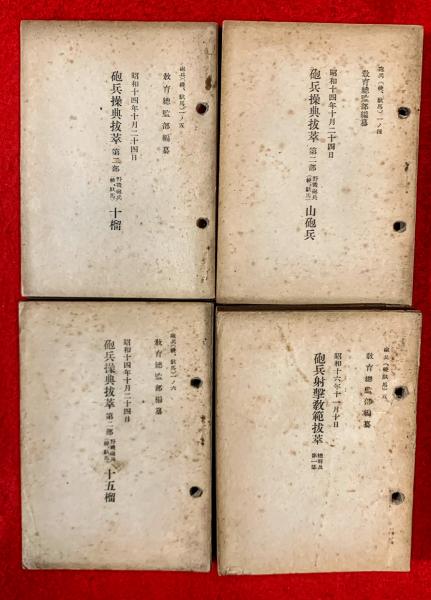 砲兵(輓、駄馬)一ノ五
教育總監部編纂
昭和十四年十月二十四日
砲兵操典拔萃 第二部 野戰砲兵(輓、駄馬) 十榴
砲兵(輓、駄馬)一ノ四
教育總監部編纂
昭和十四年十月二十四日
砲兵操典拔萃 第二部 野戰砲兵(輓、駄馬) 山砲兵
砲兵(輓、駄馬)一ノ六
教育總監部編纂
昭和十四年十月二十四日
砲兵操典拔萃 第二部 野戰砲兵(輓、駄馬) 十五榴
砲兵(輓駄馬)
教育總監部編纂
昭和十六年十一月十日
砲兵射擊敎範拔萃 第一部